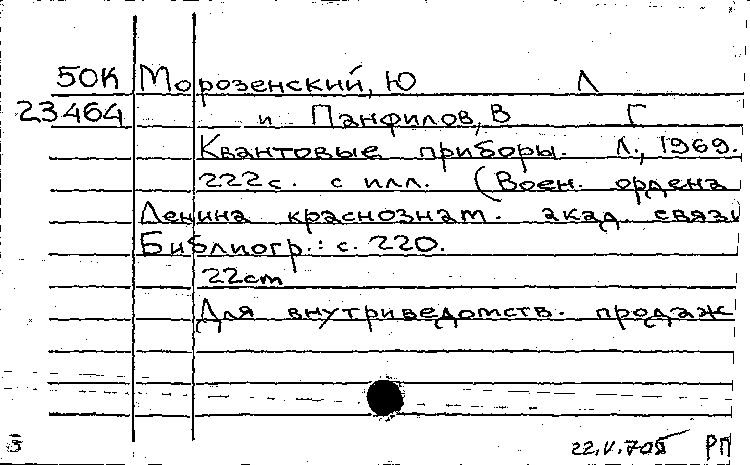 50К Морозенский, Ю Л
23464 и Панфилов, В Г
Квантовые приборы. Л., 1969.
222с. с илл. (Воен. ордена
Ленина краснознам. акад. связи
Библиогр.: с. 220.
22cm
Для внутриведомств. продаж
22.V.70 РП